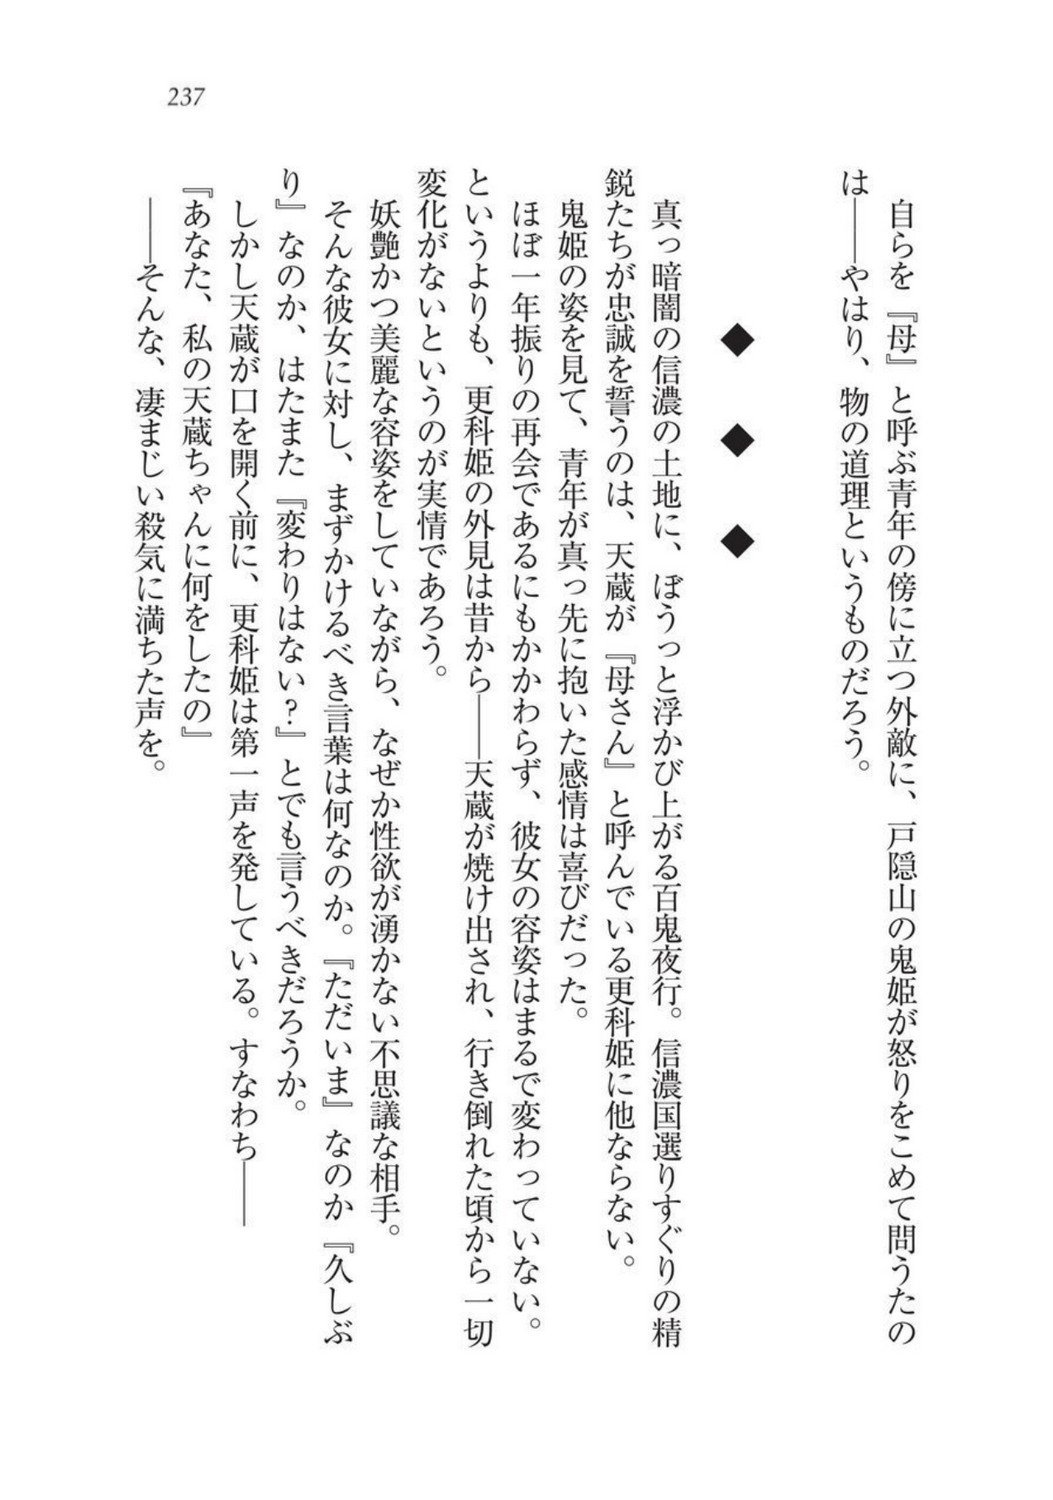 237
　自らを『母』と呼ぶ青年の傍に立つ外敵に、戸隠山の鬼姫が怒りをこめて問うたの
は――やはり、物の道理というものだろう。
◆　◆　◆
　真っ暗闇の信濃の土地に、ぼうっと浮かび上がる百鬼夜行。信濃国選りすぐりの精
鋭たちが忠誠を誓うのは、天蔵が『母さん』と呼んでいる更科姫に他ならない。
　鬼姫の姿を見て、青年が真っ先に抱いた感情は喜びだった。
　ほぼ一年振りの再会であるにもかかわらず、彼女の容姿はまるで変わっていない。
というよりも、更科姫の外見は昔から――天蔵が焼け出され、行き倒れた頃から一切
変化がないというのが実情であろう。
　妖艶かつ美麗な容姿をしていながら、なぜか性欲が湧かない不思議な相手。
　そんな彼女に対し、まずかけるべき言葉は何なのか。『ただいま』なのか『久しぶ
り』なのか、はたまた『変わりはない？』とでも言うべきだろうか。
　しかし天蔵が口を開く前に、更科姫は第一声を発している。すなわち――
『あなた、私の天蔵ちゃんに何をしたの』
　――そんな、凄まじい殺気に満ちた声を。